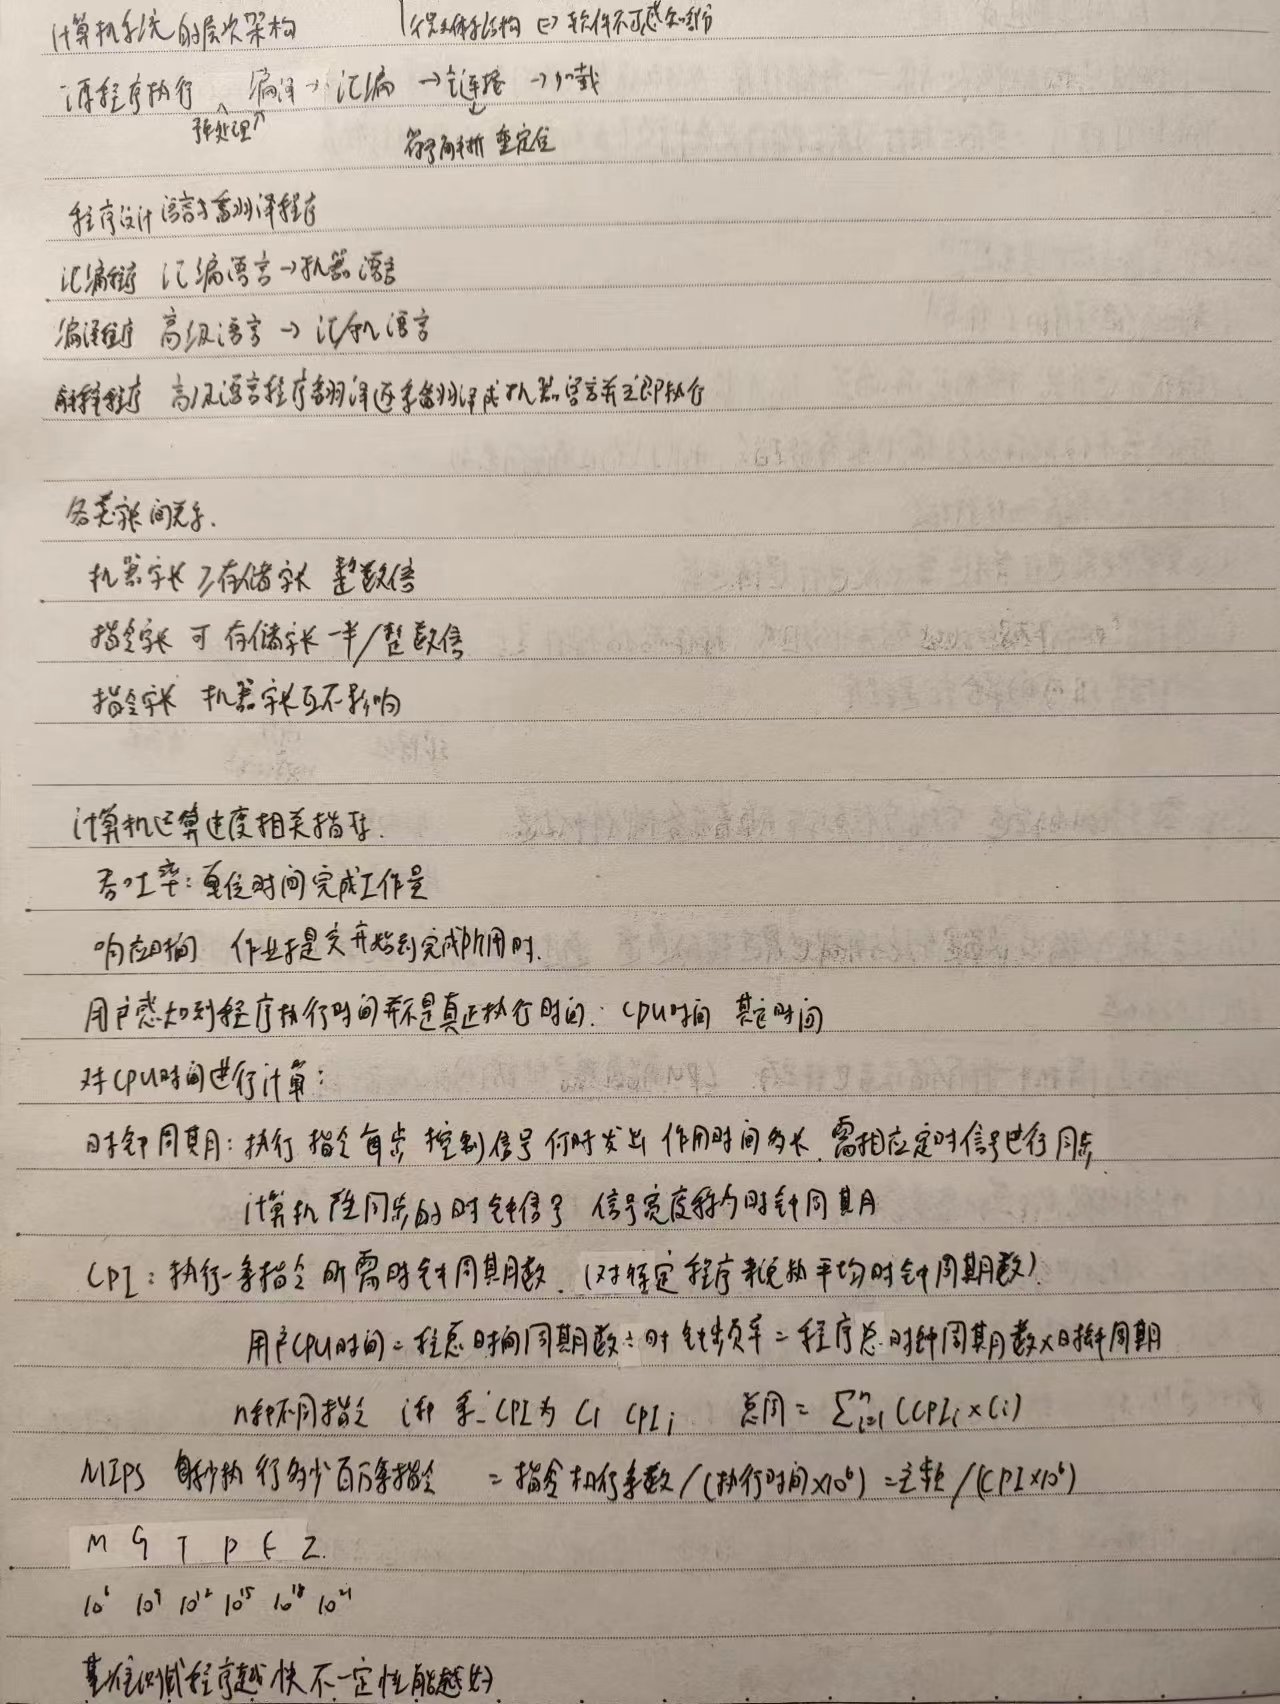 计算机系统的层次架构 体系结构 ⇔ 软件不可感知部分
源程序执行 编译 → 汇编 → 链接 → 加载
预处理
符号解析 重定位
程序设计语言与翻译程序
汇编程序 汇编语言 → 机器语言
编译程序 高级语言 → 汇/机语言
解释程序 高级语言程序翻译逐条翻译成机器语言并立即执行
各类字长间关系.
机器字长 存储字长 整数倍
指令字长 可 存储字长 一半/整数倍
指令字长 机器字长互不影响
计算机运算速度相关指标.
吞吐率: 单位时间完成工作量
响应时间 作业提交开始到完成所用时.
用户感知到程序执行时间并不是真正执行时间: CPU时间 其它时间
对CPU时间进行计算:
时钟周期: 执行指令每步 控制信号何时发出 作用时间多长. 需相应定时信号进行同步
计算机 产同步的时钟信号 信号宽度称为时钟周期
CPI: 执行一条指令所需时钟周期数. (对特定程序来说执平均时钟周期数).
用户CPU时间 = 程总时间周期数 ÷ 时钟频率 = 程序总时钟周期数 × 时钟周期
n种不同指令 i种 条 CPI为 Ci CPIi 总周 = ∑ⁿᵢ₌₁ (CPIi × Ci)
MIPS 每秒执行多少百万条指令 = 指令执行条数 / (执行时间×10⁶) = 主频 / (CPI×10⁶)
M G T P E Z
10⁶ 10⁹ 10¹² 10¹⁵ 10¹⁸ 10²¹
基准测试程序越快不一定性能越好